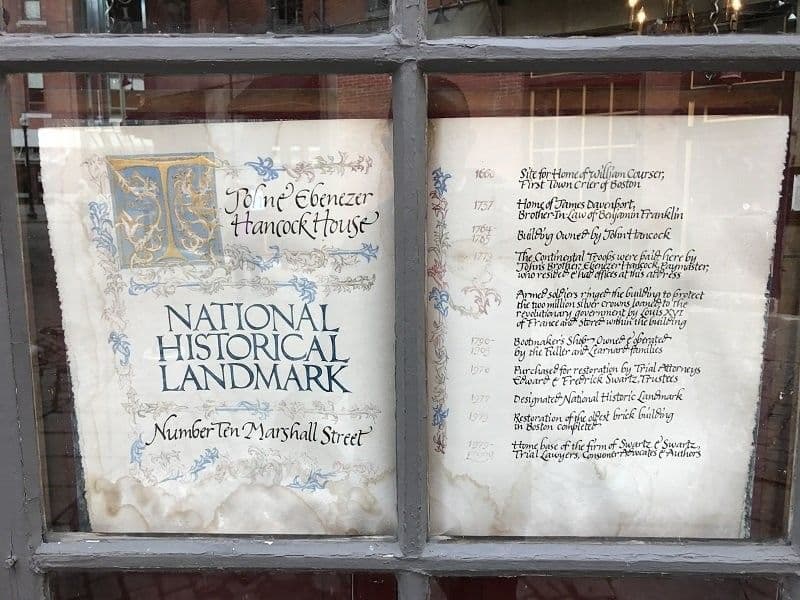 The Ebenezer
Hancock House
NATIONAL
HISTORICAL
LANDMARK
Number Ten Marshall Street
1660 Site for Home of William Courser,
First Town Crier of Boston
1737 Home of James Davenport,
Brother-In-Law of Benjamin Franklin
1764
1785 Building Owned by John Hancock
The Continental Troops were paid here by
John's Brother, Ebenezer Hancock Paymaster,
who resided & had offices at this address
Armed soldiers ringed the building to protect
the two million silver crowns loaned to the
revolutionary government by Louis XVI
of France and stored within the building
Bootmaker's Shop Owned & operated
by the Fuller and Learnard families
1976 Purchased for restoration by Trial Attorneys
Edward & Fredrick Swartz, Trustees
1977 Designated National Historic Landmark
1979 Restoration of the oldest brick building
in Boston completed
Home base of the firm of Swartz & Swartz,
Trial Lawyers, Consumer Advocates & Authors